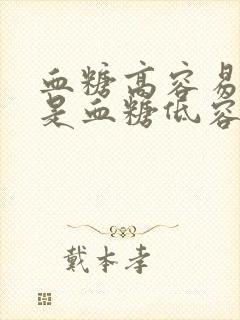 血糖高容易
是血糖低容
戴本孝